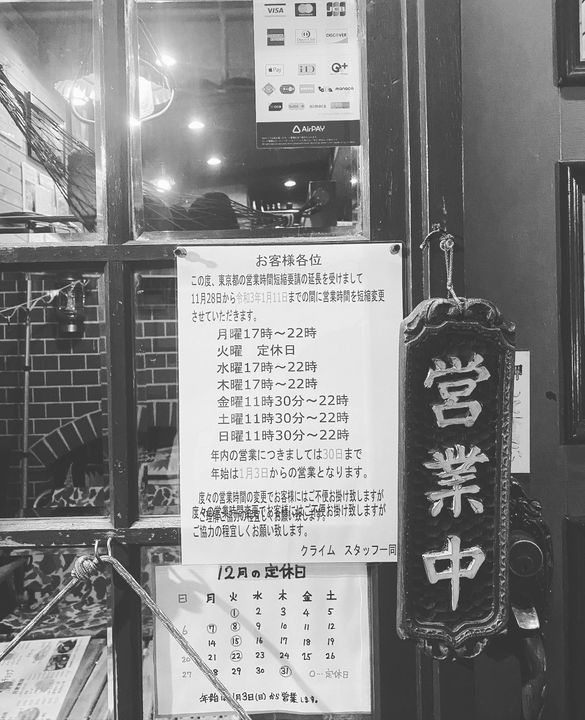 VISA
JCB
DISCOVER
Pay
iD
QUICPay
nimoca
AirPAY
お客様各位
この度、東京都の営業時間短縮要請の延長を受けまして
11月28日から令和3年1月11日までの間に営業時間を短縮変更
させていただきます。
月曜17時～22時
火曜 定休日
水曜17時～22時
木曜17時～22時
金曜11時30分～22時
土曜11時30分～22時
日曜11時30分～22時
年内の営業につきましては30日まで
年始は1月3日からの営業となります。
度々の営業時間の変更でお客様にはご不便お掛け致しますが
ご協力の程宜しくお願い致します。
クライム スタッフ一同
営業中
12月の定休日
日 月 火 水 木 金 土
① 2 3 4 5
6 ⑦ ⑧ 9 10 11 12
14 ⑮ 16 17 18 19
20 21 ㉒ 23 24 25 26
27 28 29 30 ㉛ ○…定休日
年始は1月3日(日)から営業します。